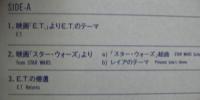 SIDE-A
1. 映画「E.T.」よりE.T.のテーマ
E.T.
2. 映画「スター・ウォーズ」より a)「スター・ウォーズ」組曲 STAR WARS
from STAR WARS b) レイアのテーマ Princess Leia's theme
3. E.T.の帰還
E.T. Returns